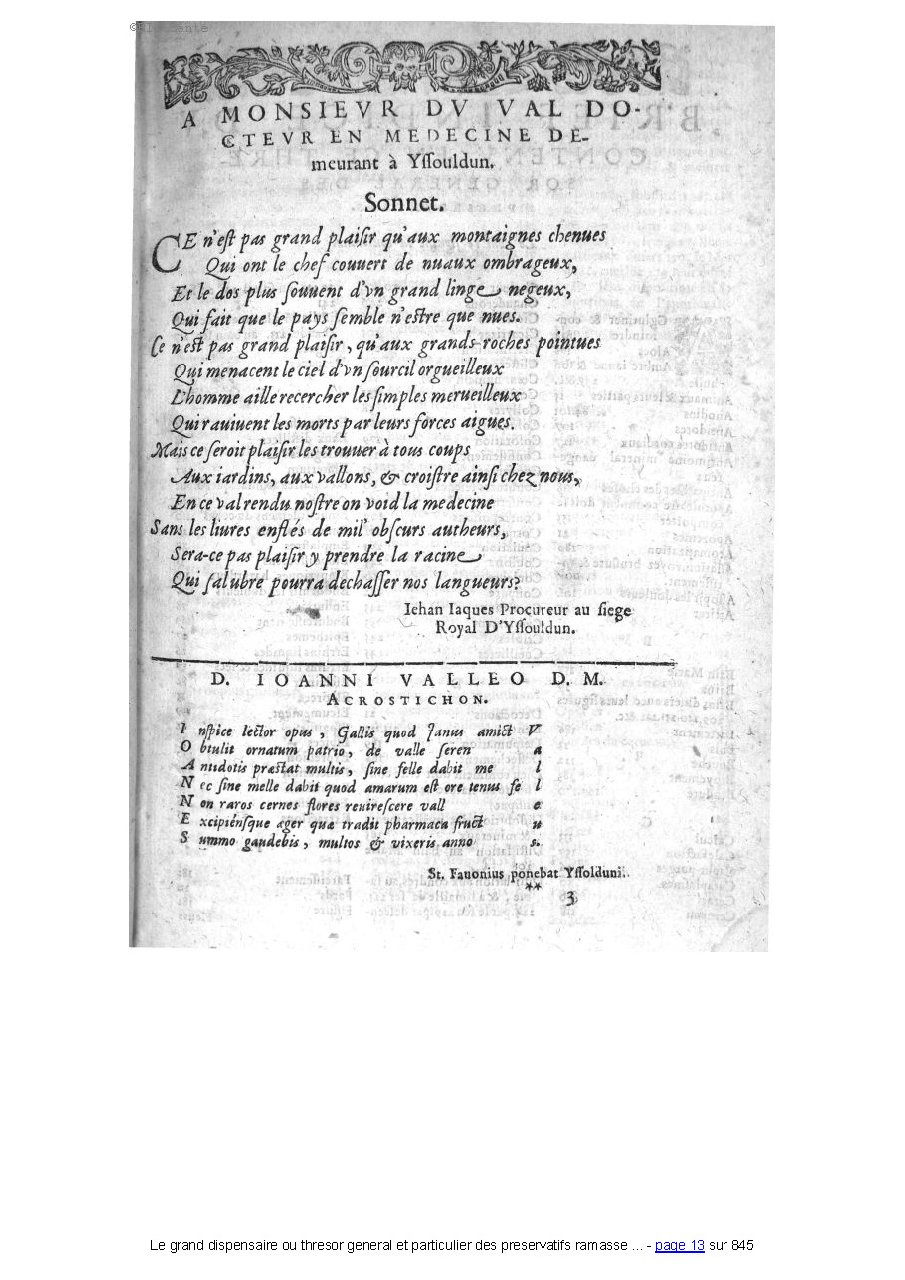 A MONSIEVR DV VAL DO-
CTEVR EN MEDECINE DE-
meurant à Yſſouldun.
Sonnet.
CE n'eſt pas grand plaiſir qu'aux montaignes chenues
Qui ont le chef couuert de nuaux ombrageux,
Et le dos plus ſouuent d'vn grand linge negeux,
Qui fait que le pays ſemble n'eſtre que nues.
Ce n'eſt pas grand plaiſir, qu'aux grands roches pointues
Qui menacent le ciel d'vn ſourcil orgueilleux
L'homme aille recercher les ſimples merueilleux
Qui rauiuent les morts par leurs forces aigues.
Mais ce ſeroit plaiſir les trouuer à tous coups
Aux iardins, aux vallons, & croiſtre ainſi chez nous,
En ce val rendu noſtre on void la medecine
Sans les liures enflés de mil' obſcurs autheurs,
Sera-ce pas plaiſir y prendre la racine
Qui ſalubre pourra dechaſſer nos langueurs?
Iehan Iaques Procureur au ſiege
Royal D'Yſſouldun.
D. IOANNI VALLEO D. M.
ACROSTICHON.
I nſpice lector opus, Gallis quod Janus amict V
O btulit ornatum patrio, de valle ſeren a
A ntidotis præſtat multis, ſine felle dabit me l
N ec ſine melle dabit quod amarum eſt ore tenus fe l
N on raros cernes flores reuireſcere vall e
E xcipiénſque ager quæ tradit pharmaca fruct u
S ummo gaudebis, multos & vixeris anno s.
St. Fauonius ponebat Yſſolduni.
** 3
Le grand dispensaire ou thresor general et particulier des preservatifs ramasse ... - page 13 sur 845